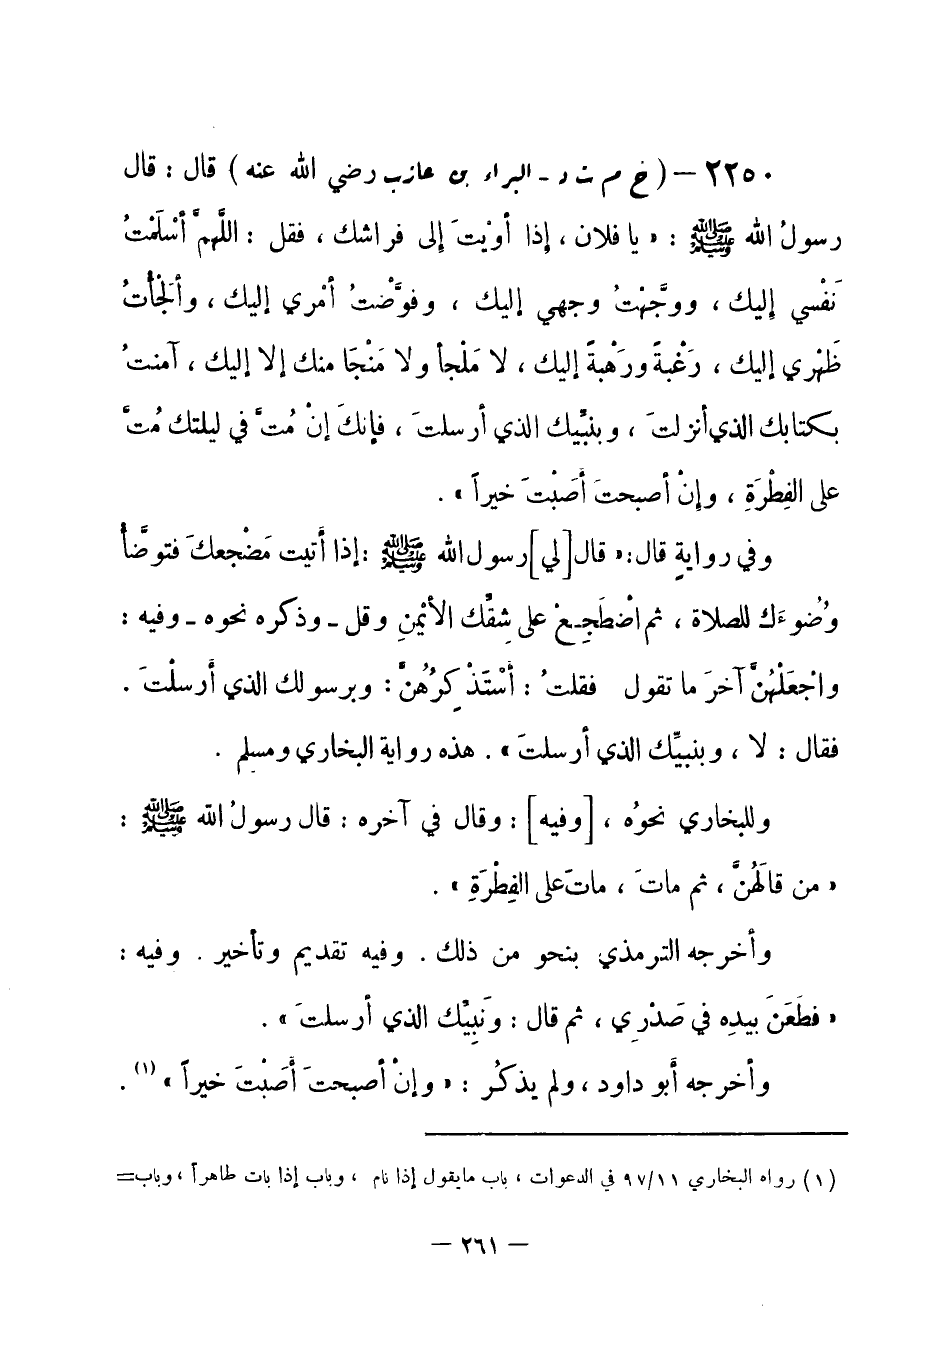 ٢٢٥٠ – ( خ م ت د - البراء بن عازب رضي الله عنه ) قال : قال
رسولُ الله ﷺ : « يا فلان ، إذا أويْتَ إلى فراشك ، فقل : اللَّهمَّ أسْلَمْتُ
نَفْسي إليك ، ووجَّهْتُ وجهي إليك ، وفوَّضْتُ أمْري إليك ، وألجْأتُ
ظَهْري إليك ، رَغْبةً ورَهْبةً إليك ، لا مَلْجأ ولا مَنْجَا منك إلا إليك ، آمنتُ
بكتابك الذي أنزلتَ ، وبنبِّيك الذي أرسلتَ ، فإنكَ إنْ مُتَّ في ليلتك مُتَّ
على الفِطْرَةِ ، وإنْ أصبحتَ أصَبْتَ خيراً » .
وفي روايةٍ قال : « قال [لي] رسول الله ﷺ : إذا أتيت مَضْجعكَ فتوضَّأ
وُضوءَك للصلاة ، ثم اضْطَجِعْ على شِقِّك الأيْمنِ وقل - وذكره نحوه - وفيه :
واجْعَلْهُنَّ آخرَ ما تقول فقلتُ : أسْتَذْكِرُهُنَّ : وبرسولك الذي أرسلْتَ .
فقال : لا ، وبنبيِّك الذي أرسلتَ » . هذه رواية البخاري ومسلم .
وللبخاري نحوُه ، [وفيه] : وقال في آخره : قال رسولُ الله ﷺ :
« من قالَهُنَّ ، ثم ماتَ ، ماتَ على الفِطْرَةِ » .
وأخرجه الترمذي بنحو من ذلك . وفيه تقديم وتأخير . وفيه :
« فطَعَنَ بيدِه في صَدْرِي ، ثم قال : ونَبِيِّك الذي أرسلتَ » .
وأخرجه أبو داود ، ولم يذكُر : « وإنْ أصبحتَ أصَبْتَ خيراً » (١) .
(١) رواه البخاري ٩٧/١١ في الدعوات ، باب ما يقول إذا نام ، وباب إذا بات طاهراً ، وباب =
– ٢٦١ –